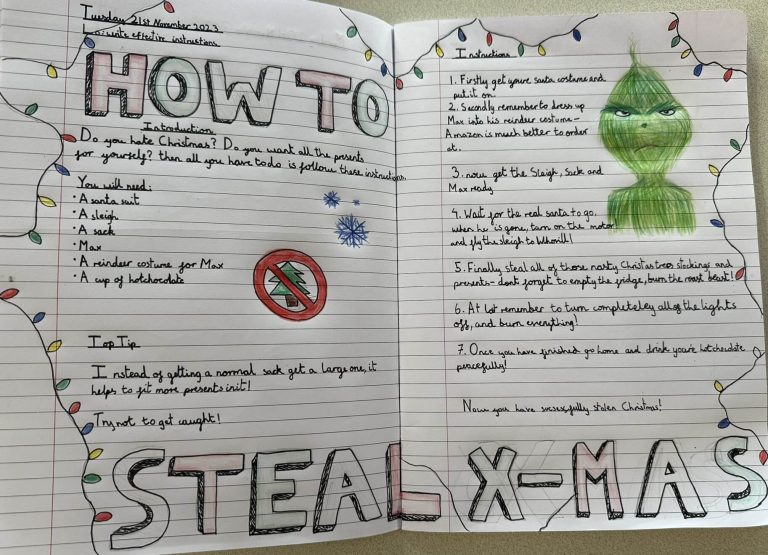 Tuesday 21st November 2023
L.O: write effective instructions
HOW TO
Introduction
Do you hate Christmas? Do you want all the presents
for yourself? then all you have todo is follow these instructions.
You will need:
• A santa suit
• A sleigh
• A sack
• Max
• A reindeer costume for Max
• A cup of hotchocolate
Top Tip
Instead of getting a normal sack get a large one, it
helps to fit more presents in it!
Try not to get caught!
Instructions
1. Firstly get youre santa costume and
put it on.
2. Secondly remember to dress up
Max into his reinder costume -
Amazon is much better to order
at.
3. now get the Sleigh, Sack and
Max ready
4. Wait for the real santa to go,
when he is gone, turn on the motor
and fly the sleigh to Whovill!
5. Finally steal all of those nasty Christas trees stockings and
presents- dont forget to empty the fridge, burn the roast beast!
6. At lot remember to turn completeley all of the lights
off, and burn everything!
7. Once you have finished go home and drink you're hotchocolate
peacefully!
Now you have sucsexfully stolen Christmas!
STEAL X-MAS